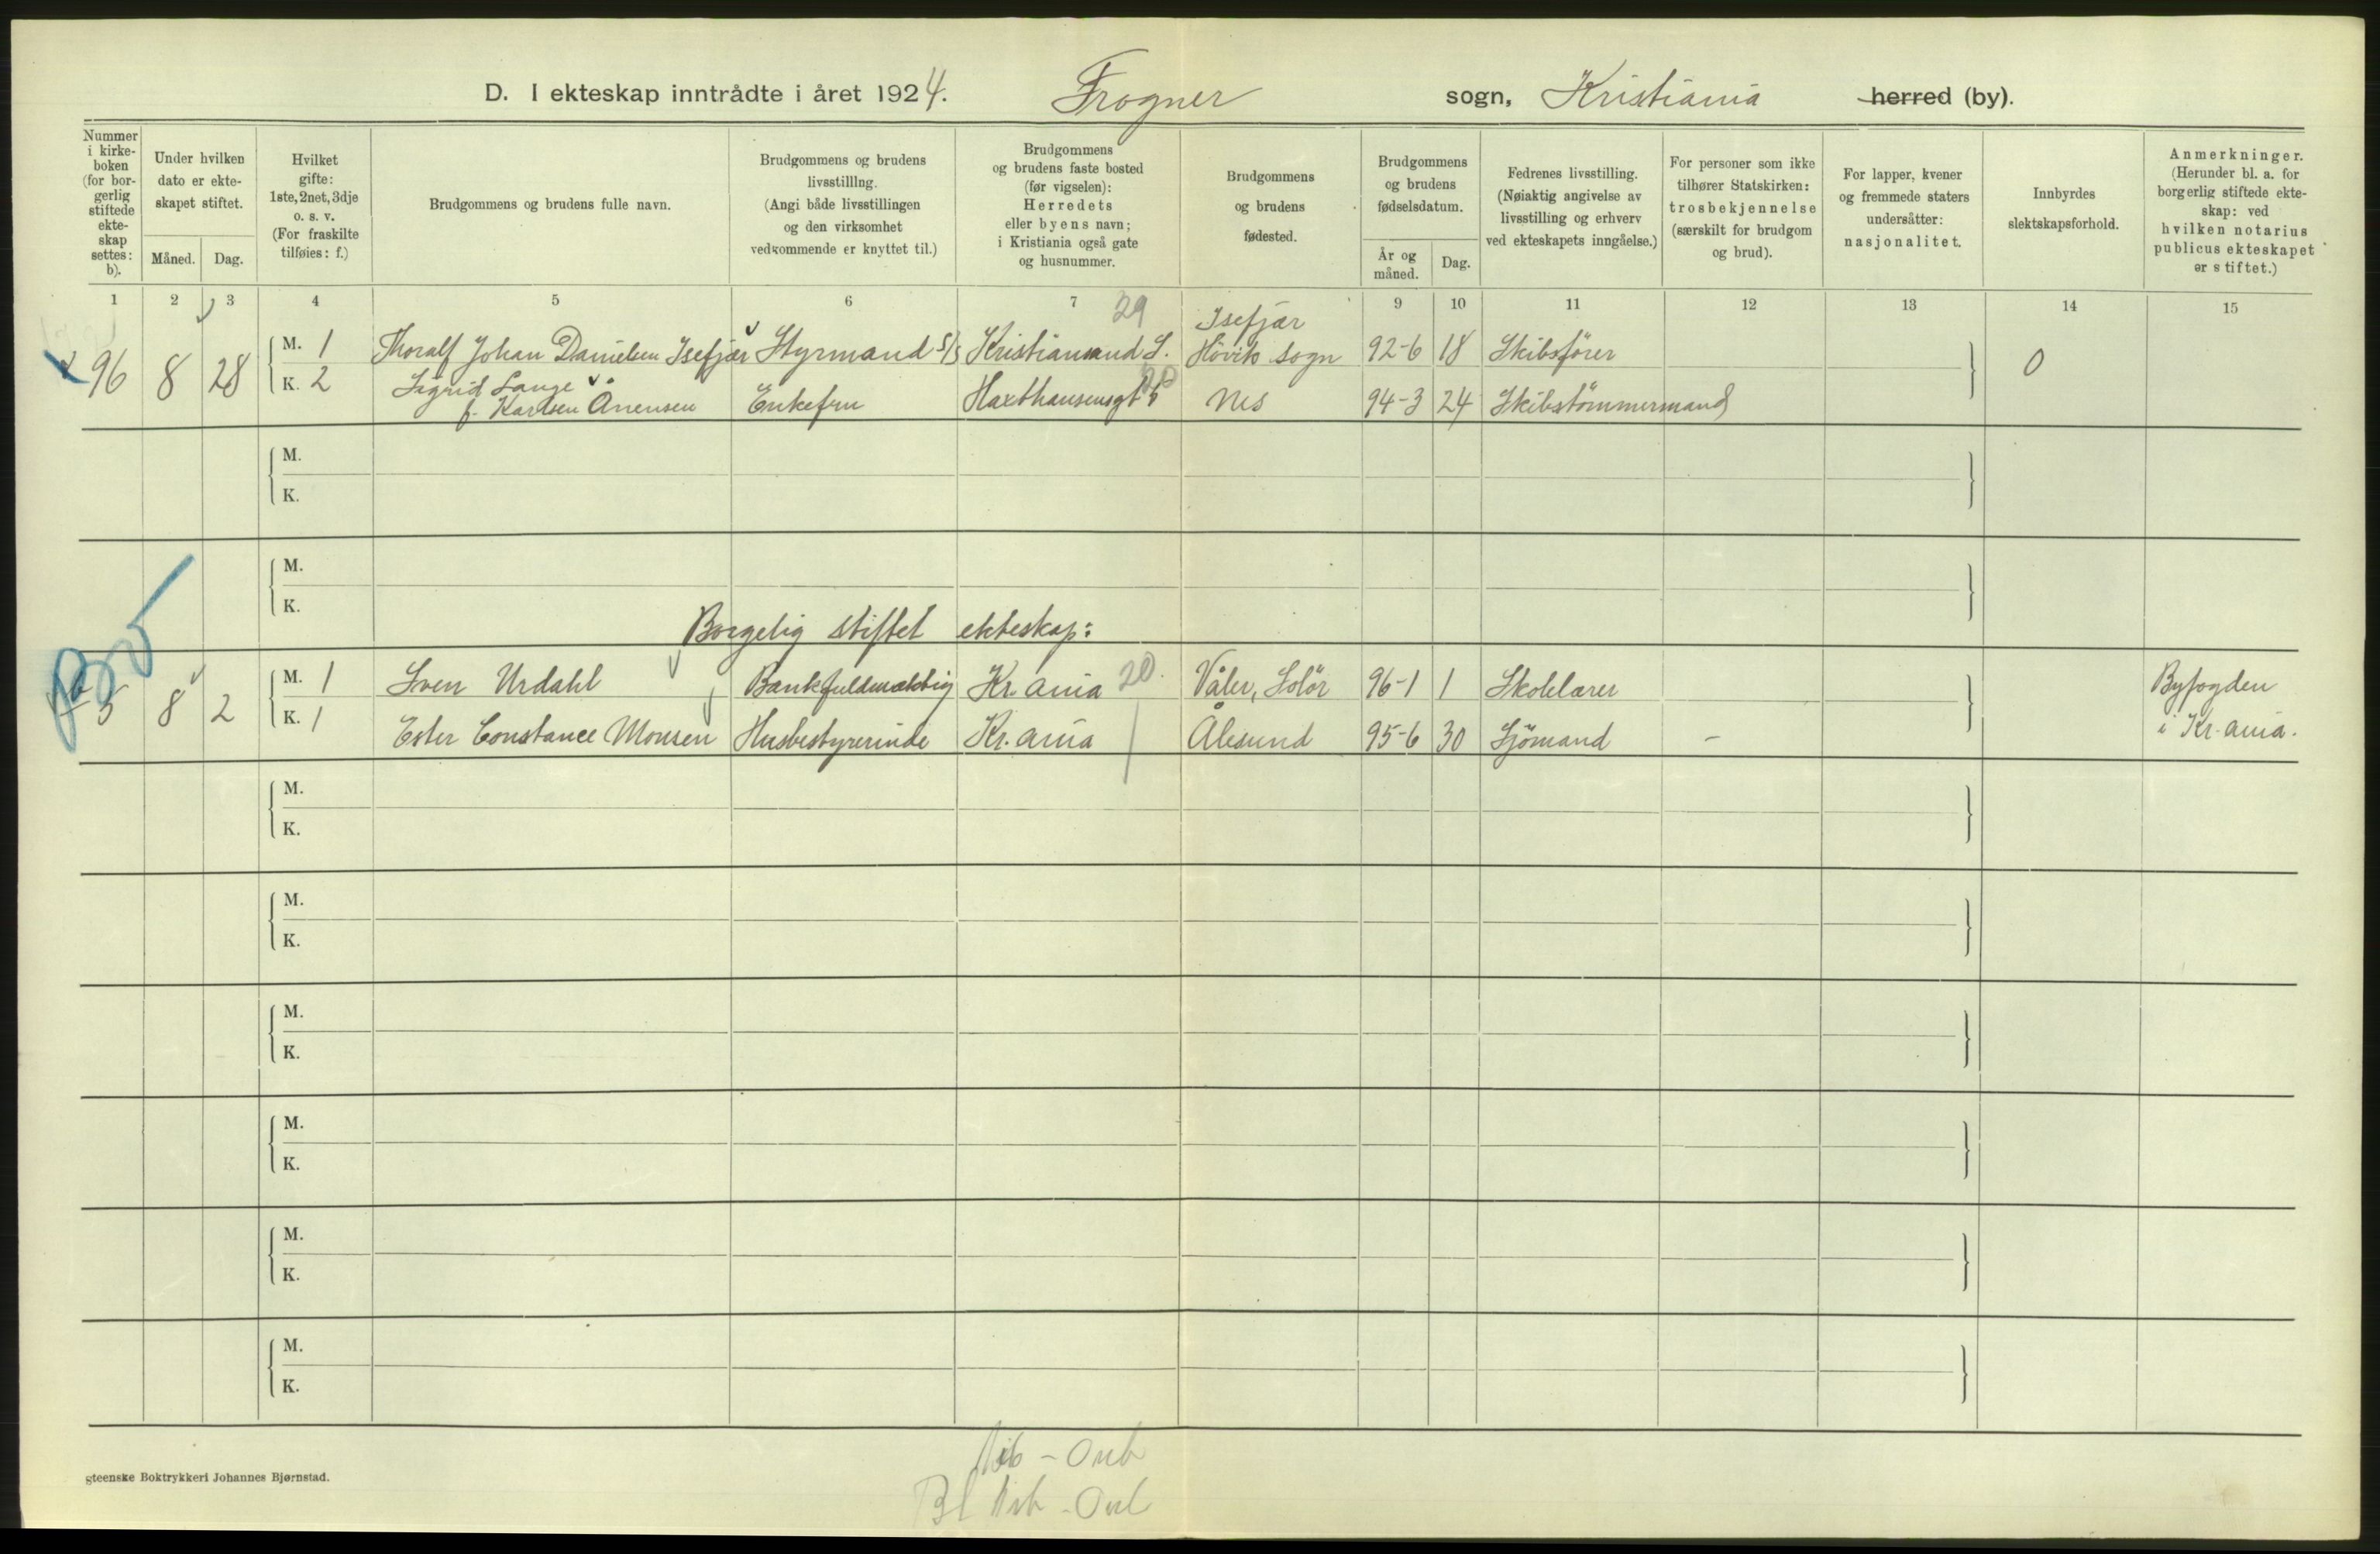 D. I ekteskap inntrådte i året 1924. Frogner sogn, Kristiania herred (by).
Nummer i kirkeboken (for borgerlig stiftede ekteskap settes: b).
Under hvilken dato er ekteskapet stiftet.
Måned. Dag.
Hvilket gifte: 1ste, 2net, 3dje o. s. v. (For fraskilte tilføies: f.)
Brudgommens og brudens fulle navn.
Brudgommens og brudens livsstilllng. (Angi både livsstillingen og den virksomhet vedkommende er knyttet til.)
Brudgommens og brudens faste bosted (før vigselen): Herredets eller byens navn; i Kristiania også gate og husnummer.
Brudgommens og brudens fødested.
Brudgommens og brudens fødselsdatum.
År og måned. Dag.
Fedrenes livsstilling. (Nøiaktig angivelse av livsstilling og erhverv ved ekteskapets inngåelse.)
For personer som ikke tilhører Statskirken: trosbekjennelse (særskilt for brudgom og brud).
For lapper, kvener og fremmede staters undersåtter: nasjonalitet.
Innbyrdes slektskapsforhold.
Anmerkninger. (Herunder bl. a. for borgerlig stiftede ekteskap: ved hvilken notarius publicus ekteskapet er stiftet.)
1 2 3 4 5 6 7 8 9 10 11 12 13 14 15
29 Isefjær
96 8 28 M. 1 Thoralf Johan Danielsen Isefjær Styrmand S/S Kristiansand S. Hövik sogn 92-6 18 Skibsfører 0
K. 2 Sigrid Lange f. Karlsen Ånensen Enkefru Haxthausensgt 20 Nes 94-3 24 Skibstömmermand
M.
K.
M.
K.
Borgelig stiftet ekteskap:
5 8 2 M. 1 Sven Urdahl Bankfuldmæktig Kr.ania 20. Våler, Solör 96-1 1 Skolelærer Byfogden
K. 1 Ester Constance Monsen Husbestyrerinde Kr.ania Ålesund 95-6 30 Sjömand - i Kr.ania.
M.
K.
M.
K.
M.
K.
M.
K.
M.
K.
M.
K.
gteenske Boktrykkeri Johannes Bjørnstad.